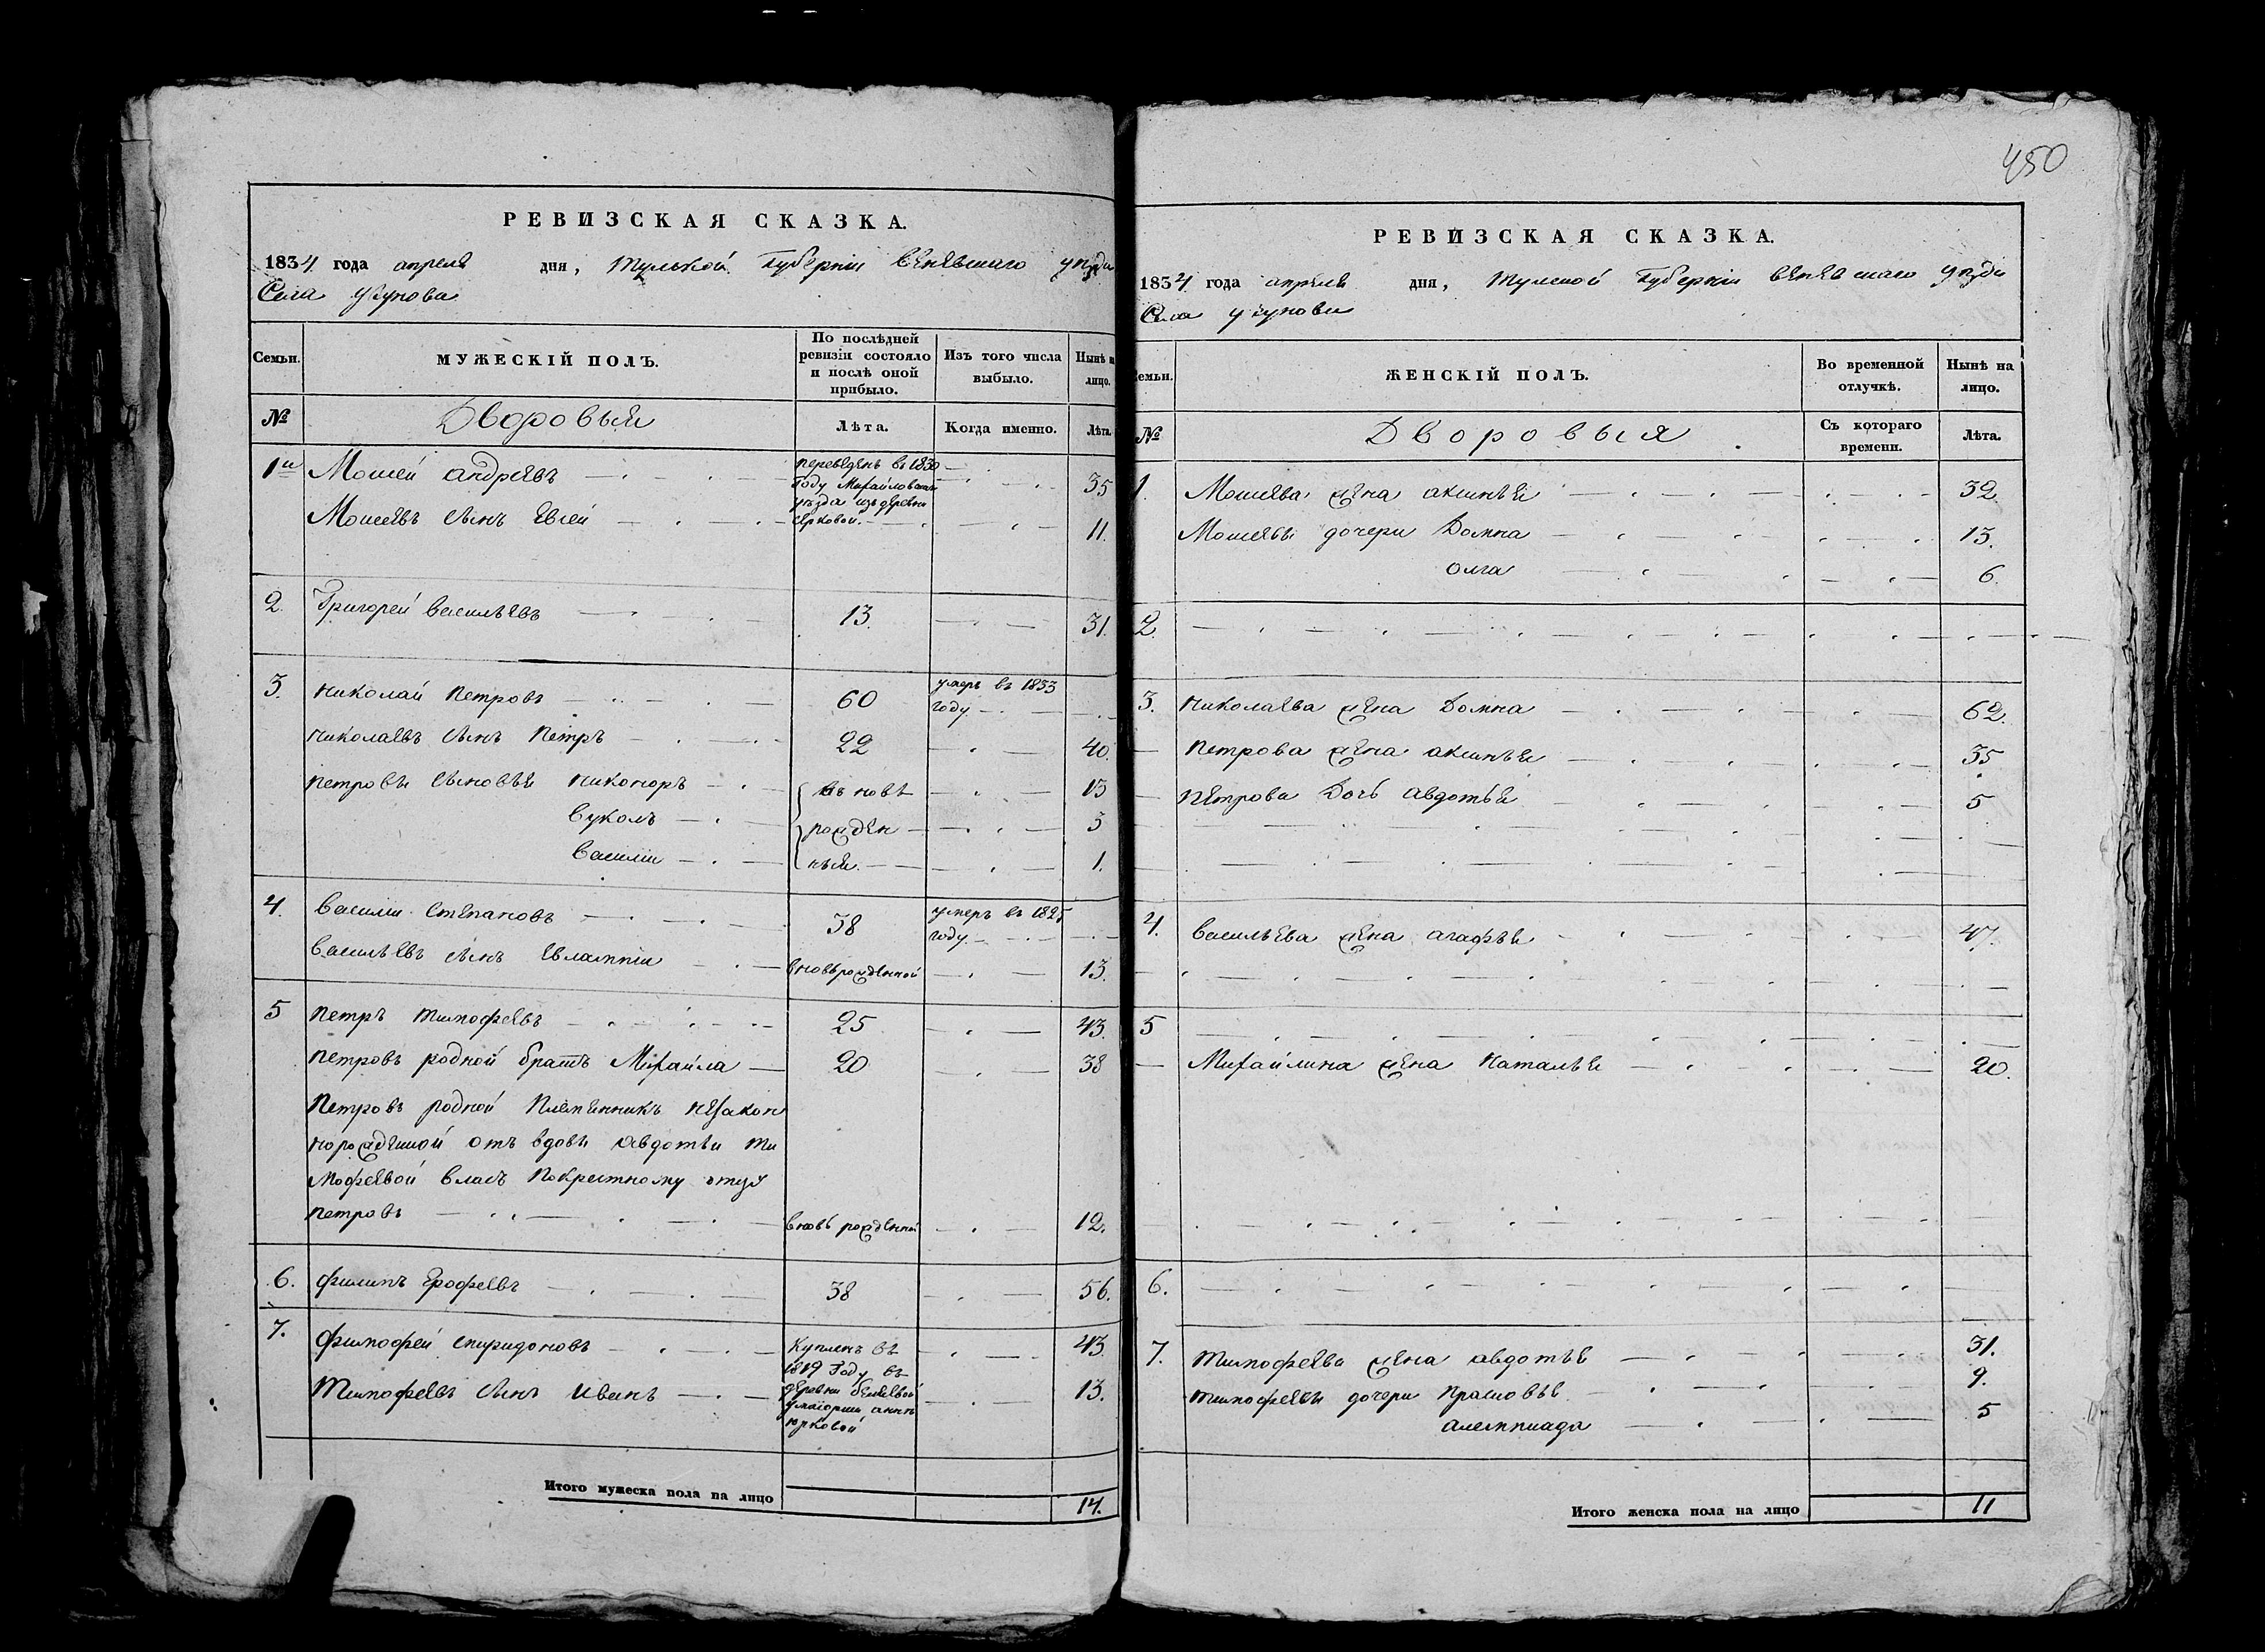 450
РЕВИЗСКАЯ СКАЗКА.
1834 года апреля дня, Тульской Губернии веневскаго уезда
Села
Семьи.
МУЖЕСКІЙ ПОЛЪ.
По послѣдней ревизіи состояло и послѣ оной прибыло.
Изъ того числа выбыло.
Нынѣ на лицо.
№
Дворовыя
Лѣта.
Когда именно.
Лѣта.
1й Мосей андреевъ переведенъ въ 1830 году Михайловскаго уезда изъ деревни 35
Мосеевъ сынъ Евсей 11.
2. Григорей васильевъ 13. 31.
3. николай Петровъ 60 умеръ въ 1833 году
николаевъ сынъ Петръ 22 40.
петровы сыновья никоноръ въ новѣ 13
вуколъ рожден 3
василии ныя 1.
4. василии степановъ 38 умеръ въ 1825 году
васильевъ сынъ Евлампии вновьрожденной 13.
5 Петръ тимофеевъ 25 43.
Петровъ родной братъ Михайла 20 38
Петровъ родной племянникъ незакон
норожденной отъ вдовы авдотьи ти
мофеевой власъ покрестному отцу
петровъ вновь рожденной 12.
6. филипъ Ерофеевъ 38 56.
7. фимофей спиридоновъ Купленъ въ 1819 Году въ деревни у маіорши анны юрковой 43
Тимофеевъ сынъ иванъ 13.
Итого мужеска пола на лицо 14.
РЕВИЗСКАЯ СКАЗКА.
1834 года апреля дня, Тулской Губерніи веневскаго уезда
Села
Семьи.
ЖЕНСКІЙ ПОЛЪ.
Во временной отлучкѣ.
Нынѣ на лицо.
№
Дворовыя.
Съ котораго времени.
Лѣта.
1. Мосеева жена аксинья 32
Мосеевы дочери Домна 13.
олга 6.
2.
3. николаева жена Домна 62.
Петрова жена аксинья 35
Петрова Дочь авдотья 5
4. васильева жена агафья 47.
5
Михайлина жена наталья 20.
6.
7. тимофеева жена авдотья 31.
тимофеевы дочери прасковья 9.
алемпиада 5
Итого женска пола на лицо 11